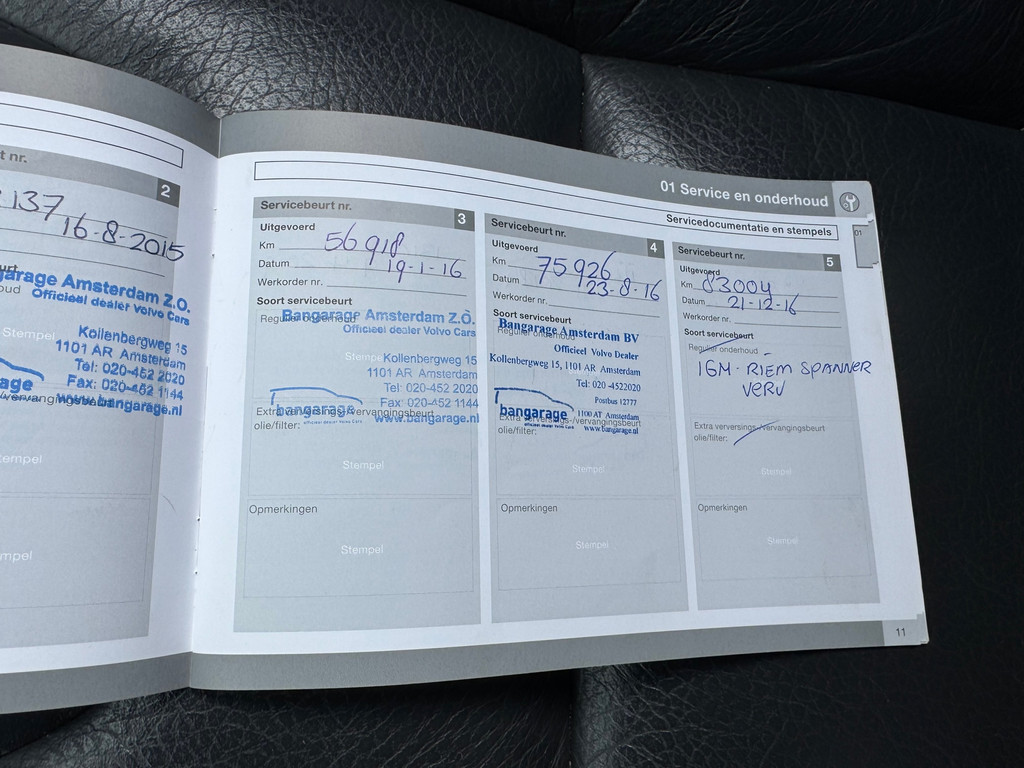 t nr.
2
137
16-8-2015
garage Amsterdam Z.O.
Officieel dealer Volvo Cars
oud
Stempel
Kollenbergweg 15
1101 AR Amsterdam
Tel: 020-452 2020
Fax: 020-452 1144
www.bangarage.nl
age
/vervangingsbeurt
empel
mpel
01 Service en onderhoud
Servicedocumentatie en stempels
01
Servicebeurt nr. 3
Uitgevoerd
Km 56918
Datum 19-1-16
Werkorder nr.
Soort servicebeurt
Regulier onderhoud
Bangarage Amsterdam Z.O.
Officieel dealer Volvo Cars
Stempel
Kollenbergweg 15
1101 AR Amsterdam
Tel: 020-452 2020
Fax: 020-452 1144
www.bangarage.nl
bangarage
officieel dealer Volvo Cars
Extra verversings-/vervangingsbeurt
olie/filter:
Stempel
Opmerkingen
Stempel
Servicebeurt nr. 4
Uitgevoerd
Km 75926
Datum 23-8-16
Werkorder nr.
Soort servicebeurt
Regulier onderhoud
Bangarage Amsterdam BV
Officieel Volvo Dealer
Kollenbergweg 15, 1101 AR Amsterdam
Tel: 020 -4522020
Postbus 12777
1100 AT Amsterdam
www.bangarage.nl
bangarage
officieel dealer Volvo Cars
Extra verversings-/vervangingsbeurt
olie/filter:
Stempel
Opmerkingen
Stempel
Servicebeurt nr. 5
Uitgevoerd
Km 83004
Datum 21-12-16
Werkorder nr.
Soort servicebeurt
Regulier onderhoud
IGM. RIEM SPANNER
VERV
Extra verversings-/vervangingsbeurt
olie/filter:
Stempel
Opmerkingen
Stempel
11